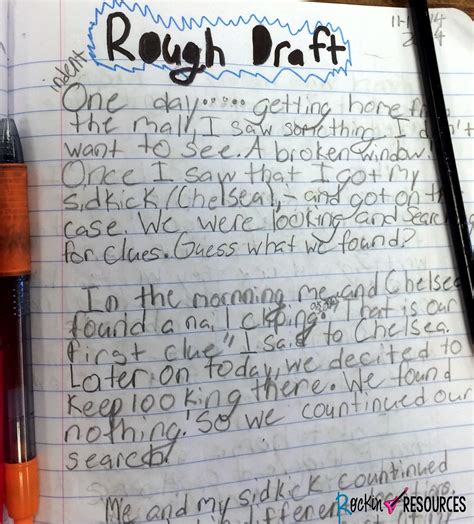 11-1 14
Rough Draft
indent
One day..... getting home
the mall, I saw something I
want to see. A broken window!
Once I saw that I got my
sidkick (Chelsea), and got on
case. We were looking and
for clues. Guess what we found?
In the mornning me and Chelsea
found a nail cliping. "That is our
first clue" I said to Chelsea.
Later on today, we decited to
keep looking there. We found
nothing. So we countinued our
search.
Me and my sidkick countinued
different
Rockin RESOURCES